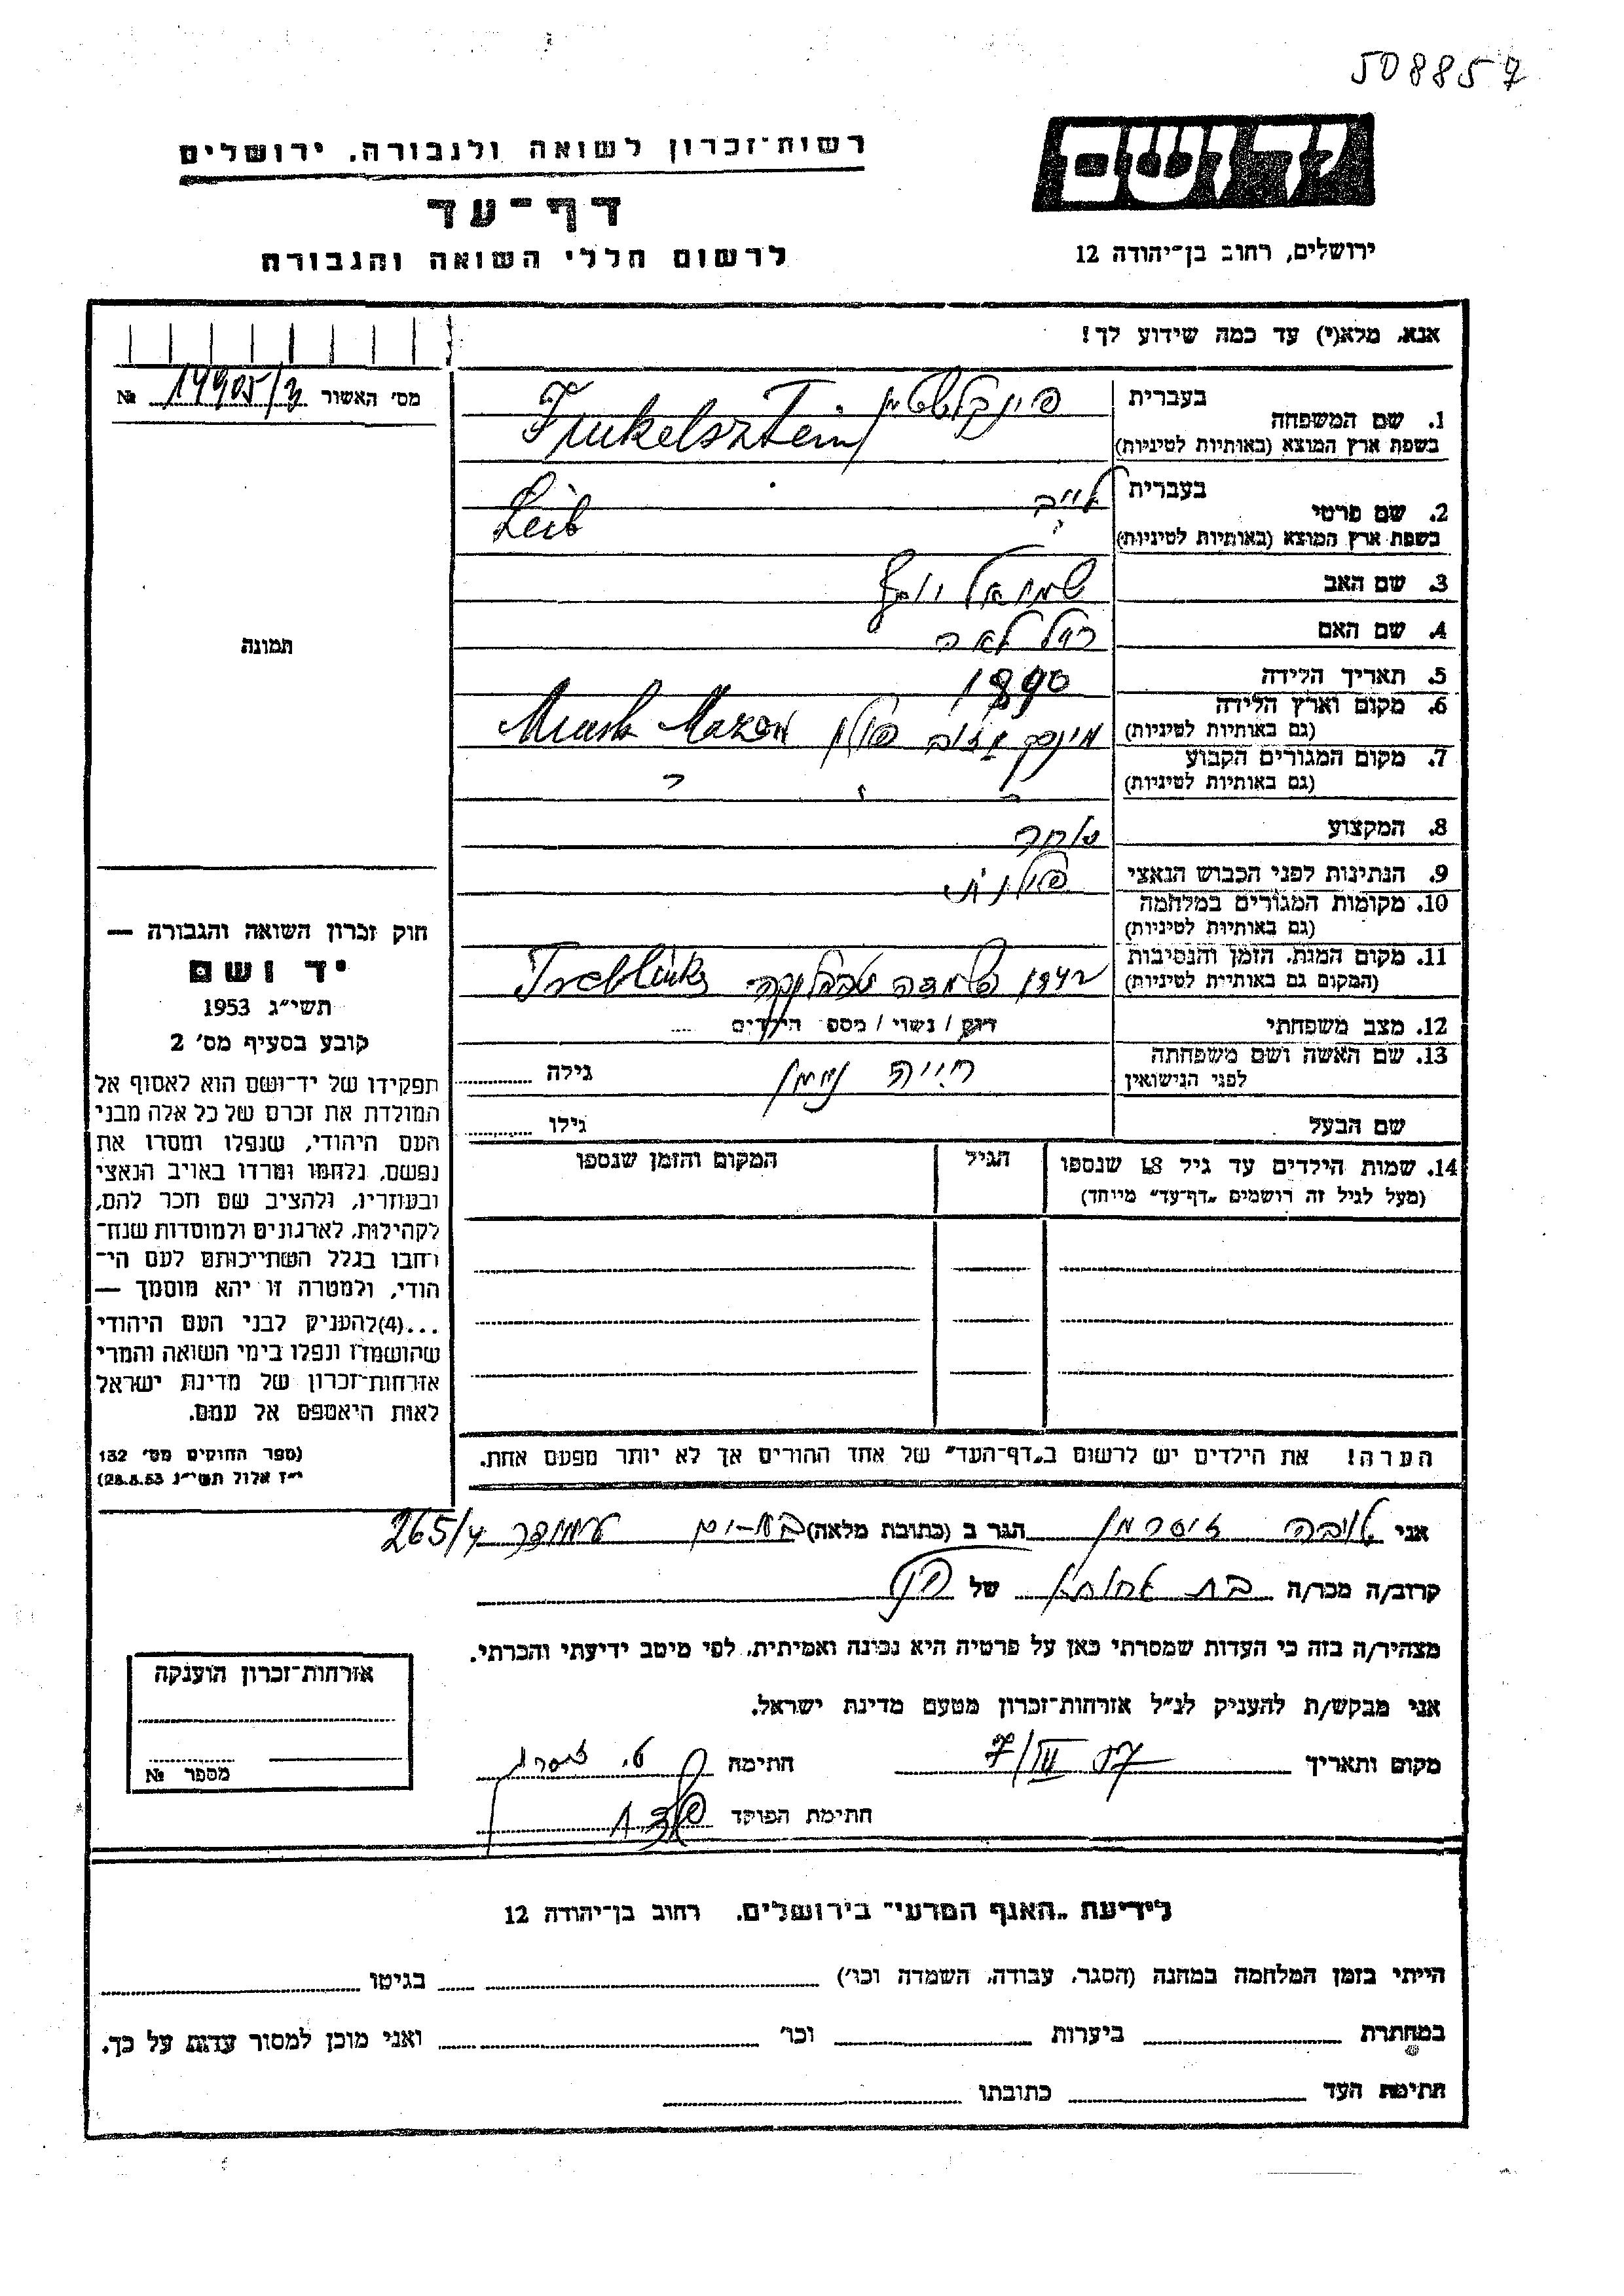 508857
יד ושם
ירושלים, רחוב בן־יהודה 12
רשות־זכרון לשואה ולגבורה, ירושלים
דף־עד
לרשום חללי השואה והגבורה
אנא, מלא(י) עד כמה שידוע לך!
מס׳ האשור №
1. שם המשפחה בעברית פינקלשטיין
בשפת ארץ המוצא (באותיות לטיניות) Finkelsztein
2. שם פרטי בעברית לייב
בשפת ארץ המוצא (באותיות לטיניות) Leib
3. שם האב שמואל יוסף
4. שם האם לאה
5. תאריך הלידה 1890
6. מקום וארץ הלידה
(גם באותיות לטיניות) מינסק מזוב פולין Minsk Mazow
7. מקום המגורים הקבוע
(גם באותיות לטיניות) " " "
8. המקצוע סוחר
9. הנתינות לפני הכבוש הנאצי פולנית
10. מקומות המגורים במלחמה
(גם באותיות לטיניות)
11. מקום המות, הזמן והנסיבות
(המקום גם באותיות לטיניות) 1942 השמדה טרבלינקה Treblinka
12. מצב משפחתי רווק / נשוי / מספר הילדים
13. שם האשה ושם משפחתה
לפני הנישואין חייה נוימן גילה
שם הבעל גילו
14. שמות הילדים עד גיל 18 שנספו הגיל המקום והזמן שנספו
(מעל לגיל זה רושמים „דף־עד״ מיוחד)
הערה! את הילדים יש לרשום ב„דף־העד״ של אחד ההורים אך לא יותר מפעם אחת.
תמונה
חוק זכרון השואה והגבורה —
יד ושם
תשי״ג 1953
קובע בסעיף מס׳ 2
תפקידו של יד־ושם הוא לאסוף אל
המולדת את זכרם של כל אלה מבני
העם היהודי, שנפלו ומסרו את
נפשם, נלחמו ומרדו באויב הנאצי
ובעוזריו, ולהציב שם וזכר להם,
לקהילות, לארגונים ולמוסדות שנח־
רבו בגלל השתייכותם לעם הי־
הודי, ולמטרה זו יהא מוסמך —
...(4)להעניק לבני העם היהודי
שהושמדו ונפלו בימי השואה והמרי
אזרחות־זכרון של מדינת ישראל
לאות היאספם אל עמם.
(ספר החוקים מס׳ 132
י״ז אלול תשי״ג 28.8.53)
אני ליבה זיסרמן הגר ב (כתובת מלאה) בת-ים עמידר 265/4
קרוב/ה מכר/ה בת אחותו של הנ״ל
מצהיר/ה בזה כי העדות שמסרתי כאן על פרטיה היא נכונה ואמיתית, לפי מיטב ידיעתי והכרתי.
אני מבקש/ת להעניק לנ״ל אזרחות־זכרון מטעם מדינת ישראל.
מקום ותאריך 7/III 57 חתימה
חתימת הפוקד
אזרחות־זכרון הוענקה
מספר №
לידיעת „האגף המדעי״ בירושלים, רחוב בן־יהודה 12
הייתי בזמן המלחמה במחנה (הסגר, עבודה, השמדה וכו׳) בגיטו
במחתרת ביערות וכו׳ ואני מוכן למסור עדות על כך.
חתימת העד כתובתו